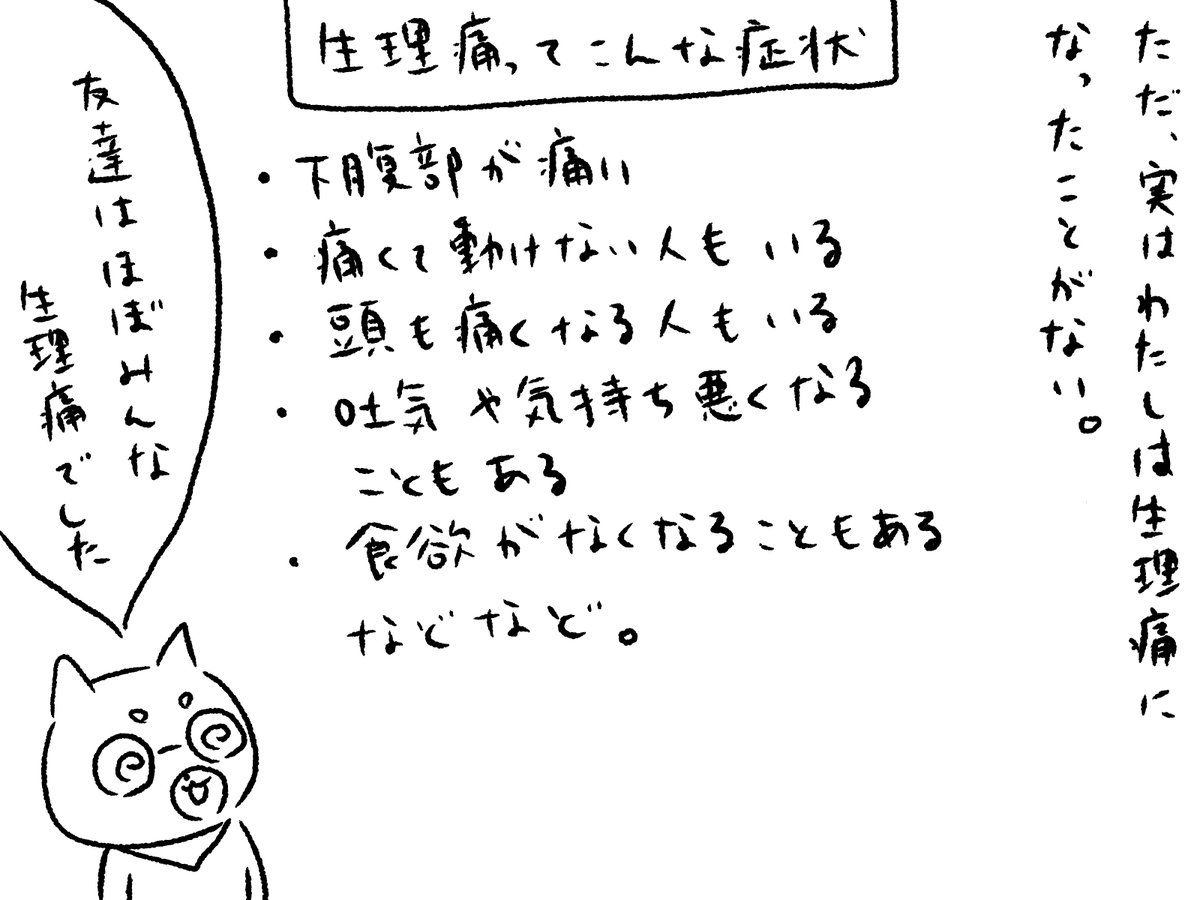 ただ、実はわたしは生理痛に
なったことがない。
生理痛ってこんな症状
・下腹部が痛い
・痛くて動けない人もいる
・頭も痛くなる人もいる
・吐気や気持ち悪くなる
こともある
・食欲がなくなることもある
などなど。
友達はほぼみんな
生理痛でした